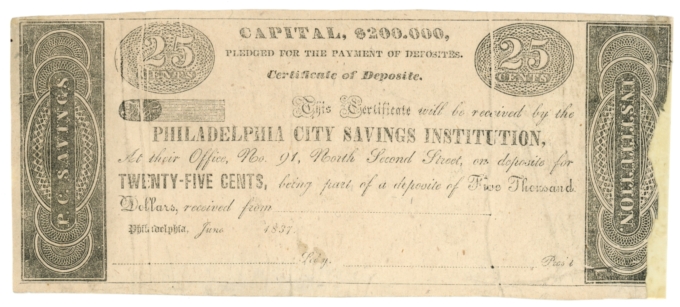 CAPITAL, $200.000,
PLEDGED FOR THE PAYMENT OF DEPOSITES.
Certificate of Deposite.
25 CENTS
25 CENTS
P.C. SAVINGS
INSTITUTION
This Certificate will be received by the
PHILADELPHIA CITY SAVINGS INSTITUTION,
At their Office, No. 91, North Second Street, on deposite for
TWENTY-FIVE CENTS, being part of a deposite of Five Thousand
Dollars, received from
Philadelphia, June 1837.
Sec'y. Pres't